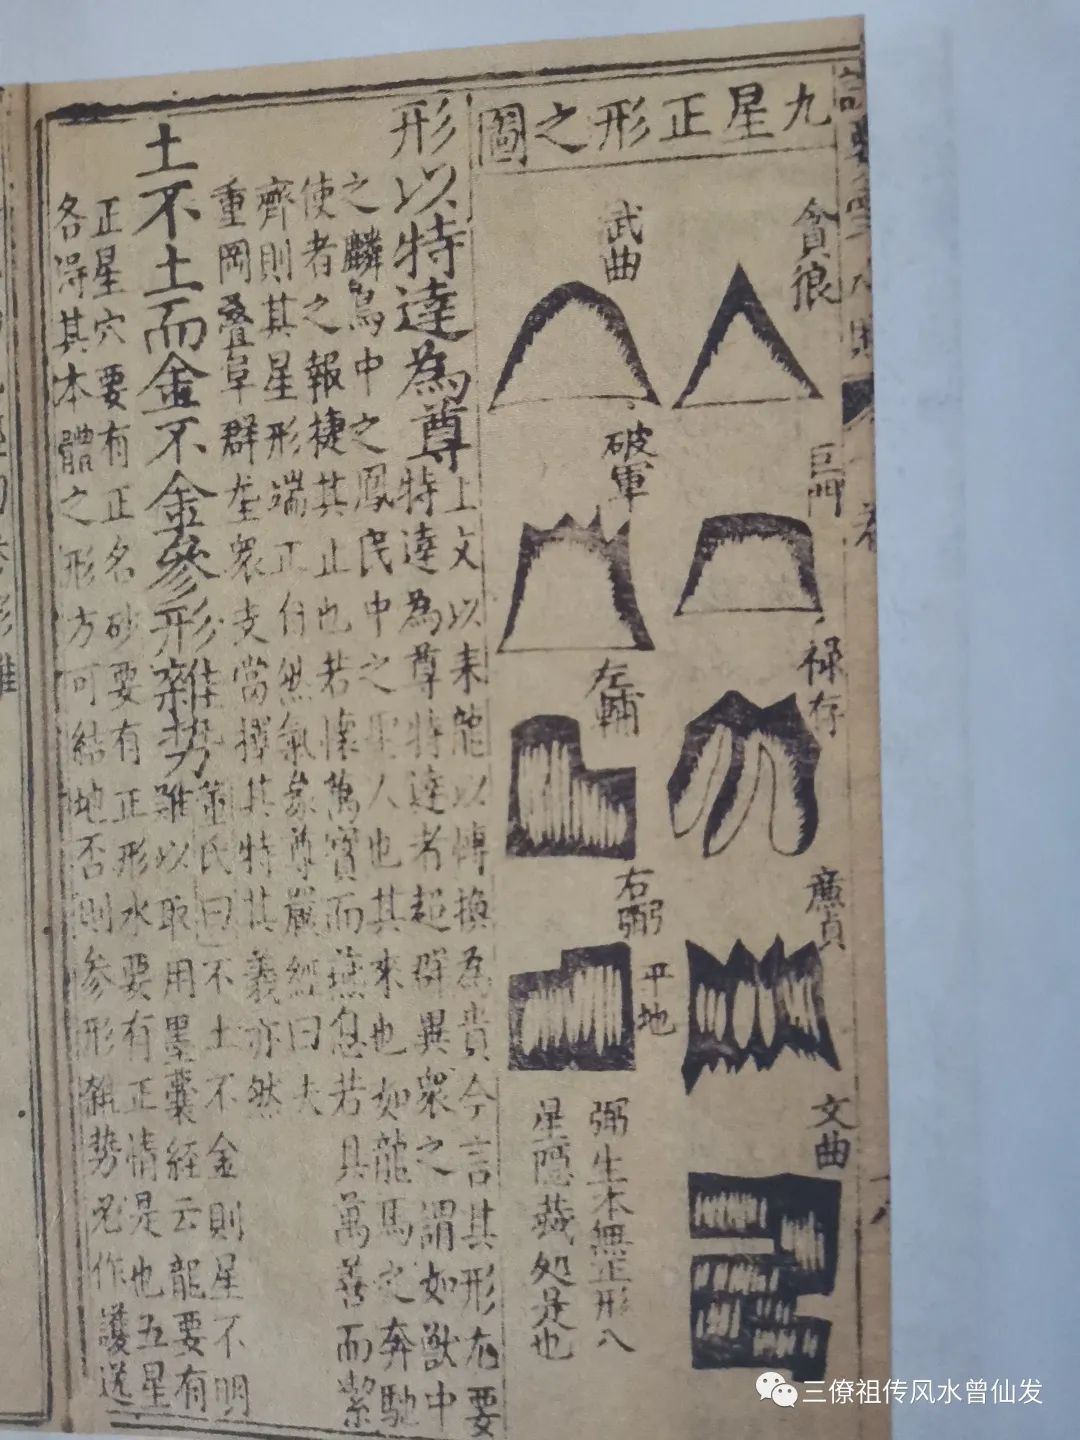 九星正形之圖
貪狼
武曲
巨門
破軍
祿存
左輔
廉貞
右弼
平地
文曲
弼生本無正形八
星隱藏処是也
形以特達為尊
上文以来龍以慱換為貴今言其形尤要
特達為尊特達者超群異衆之謂如獣中
之麟鳥中之鳳民中之聖人也其來也如龍馬之奔馳
使者之報捷其止也若懷萬寶而燕息若具萬善而潔
齊則其星形端正自然氣象尊嚴經曰夫
重岡疊阜群壟衆支當擇其特其義亦然
土不土而金不金參形雜势
董氏曰不土不金則星不明
難以取用墨囊経云龍要有
正星穴要有正名砂要有正形水要有正情是也五星
各得其本體之形方可結地否則参形雜势必作護送
三僚祖传风水曾仙发